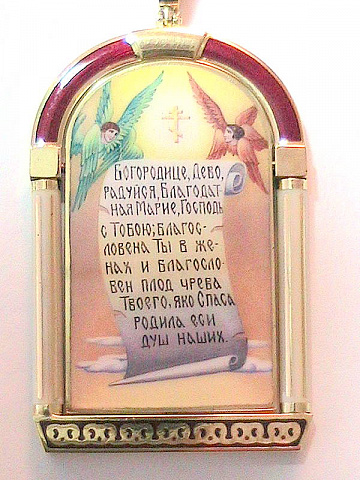 Богородице, Дево,
радуйся, Благодат-
ная Марие, Господь
с Тобою; благос-
ловена Ты в же-
нах и благосло-
вен плод чрева
Твоего, яко Спаса
родила еси
душ наших.